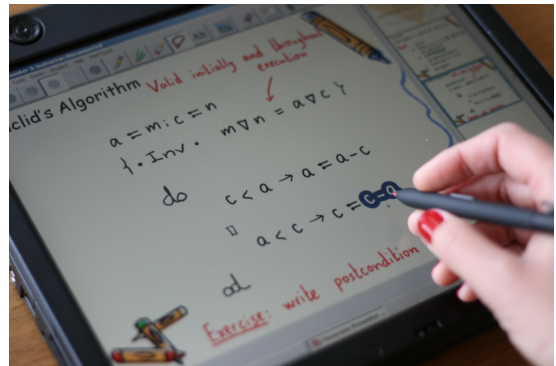 clid's Algorithm Valid initially and throughout
execution
a = m ; c = n
{ · Inv · m ∇ n = a ∇ c }
do c < a → a = a - c
▯ a < c → c = c - a
od
Exercise: write postcondition